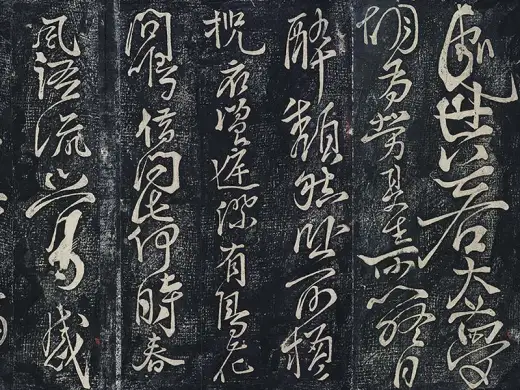 處世若大夢
胡為勞其生所以終日
醉頹然卧前楹
有鳥花
間鳴借問此何時春
風語流鶯感